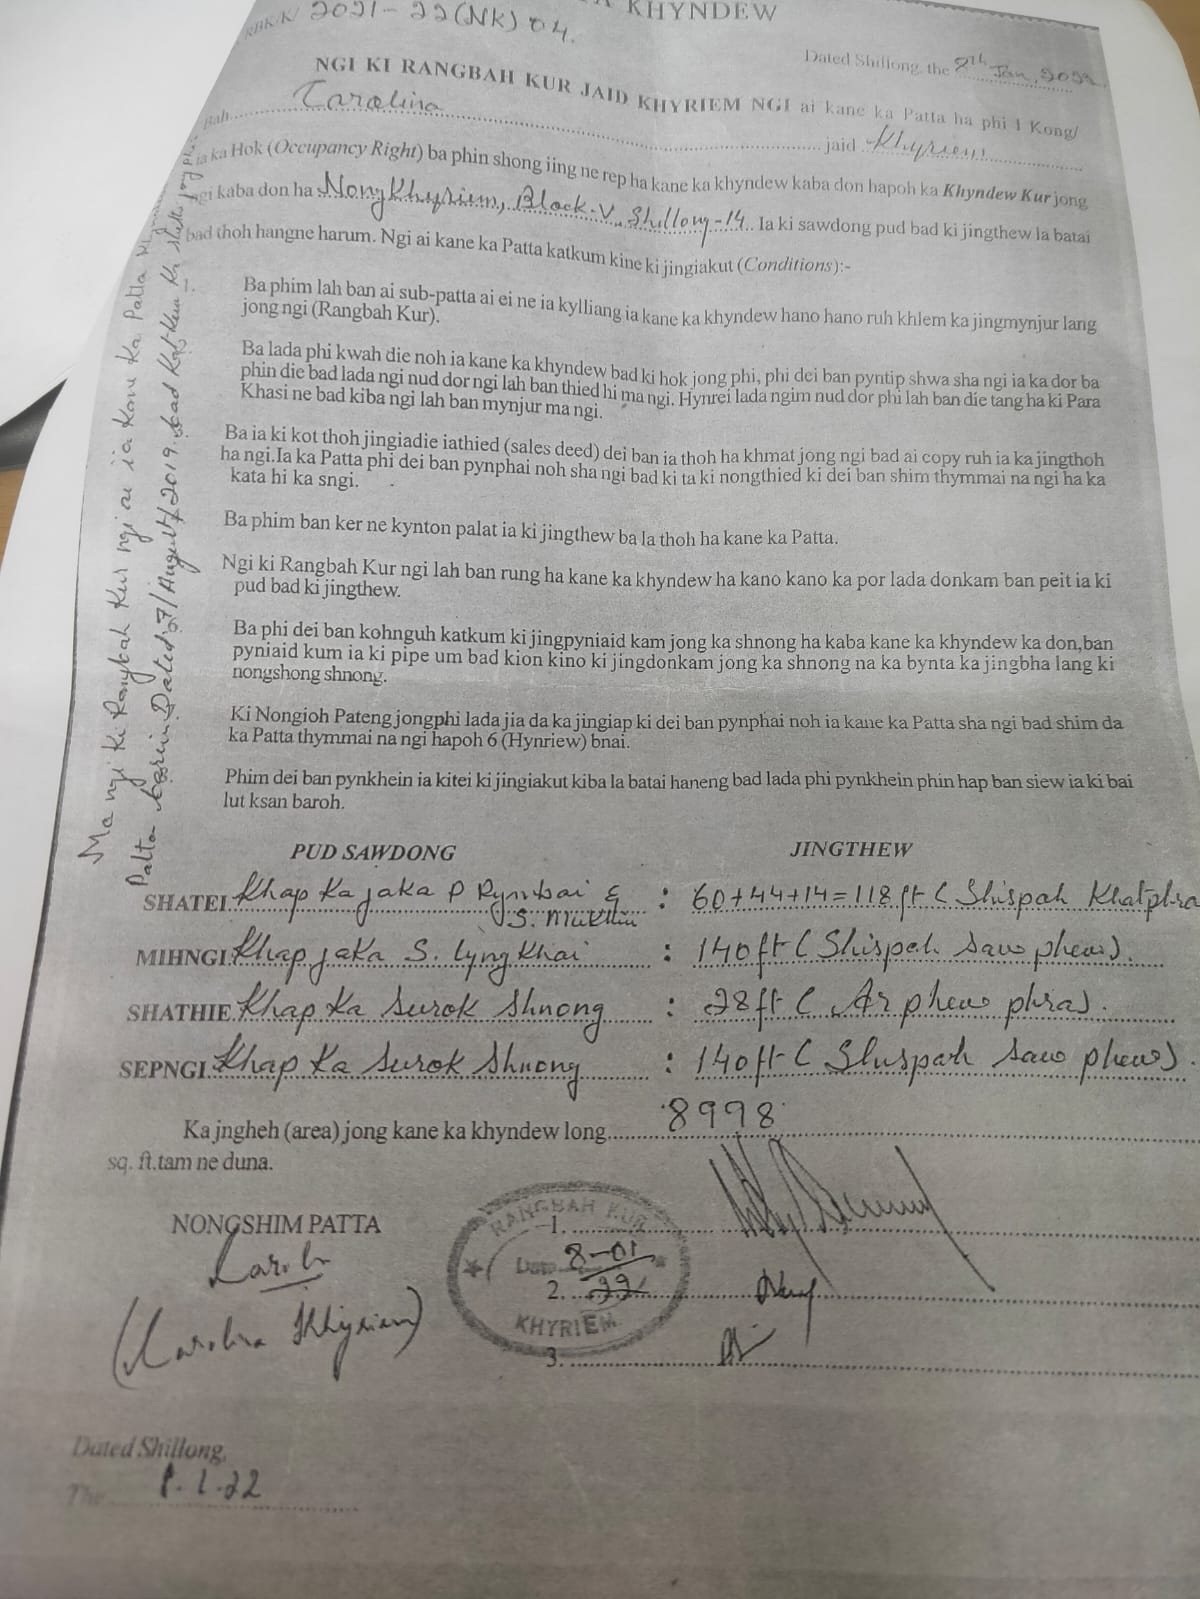 KHYNDEW
RBK/K/ 2021-22(NK) 04.
Dated Shillong, the 8th Jan, 2022
NGI KI RANGBAH KUR JAID KHYRIEM NGI ai kane ka Patta ha phi I Kong/
Bah Carolina jaid Khyriem
ia ka Hok (Occupancy Right) ba phin shong iing ne rep ha kane ka khyndew kaba don hapoh ka Khyndew Kur jong
ngi kaba don ha NongKhyriem, Block-V, Shillong-14. Ia ki sawdong pud bad ki jingthew la batai
bad thoh hangne harum. Ngi ai kane ka Patta katkum kine ki jingiakut (Conditions):-
1. Ba phim lah ban ai sub-patta ai ei ne ia kylliang ia kane ka khyndew hano hano ruh khlem ka jingmynjur lang
jong ngi (Rangbah Kur).
Ba lada phi kwah die noh ia kane ka khyndew bad ki hok jong phi, phi dei ban pyntip shwa sha ngi ia ka dor ba
phin die bad lada ngi nud dor ngi lah ban thied hi ma ngi. Hynrei lada ngim nud dor phi lah ban die tang ha ki Para
Khasi ne bad kiba ngi lah ban mynjur ma ngi.
Ba ia ki kot thoh jingiadie iathied (sales deed) dei ban ia thoh ha khmat jong ngi bad ai copy ruh ia ka jingthoh
ha ngi.Ia ka Patta phi dei ban pynphai noh sha ngi bad ki ta ki nongthied ki dei ban shim thymmai na ngi ha ka
kata hi ka sngi.
Ba phim ban ker ne kynton palat ia ki jingthew ba la thoh ha kane ka Patta.
Ngi ki Rangbah Kur ngi lah ban rung ha kane ka khyndew ha kano kano ka por lada donkam ban peit ia ki
pud bad ki jingthew.
Ba phi dei ban kohnguh katkum ki jingpyniaid kam jong ka shnong ha kaba kane ka khyndew ka don,ban
pyniaid kum ia ki pipe um bad kion kino ki jingdonkam jong ka shnong na ka bynta ka jingbha lang ki
nongshong shnong.
Ki Nongioh Pateng jongphi lada jia da ka jingiap ki dei ban pynphai noh ia kane ka Patta sha ngi bad shim da
ka Patta thymmai na ngi hapoh 6 (Hynriew) bnai.
Phim dei ban pynkhein ia kitei ki jingiakut kiba la batai haneng bad lada phi pynkhein phin hap ban siew ia ki bai
lut ksan baroh.
Ma ngi Ki Rangbah Kur ngi ai ia Kane Ka Patta
Patta Dated 27/August/2019. bad
PUD SAWDONG JINGTHEW
SHATEI Khap Ka jaka P Rymbai &
S. : 60+44+14=118ft ( Shispah Khatphra
MIHNGI Khap jaKa S. LyngKhai : 140ft ( Shispah Saw phew).
SHATHIE Khap Ka Surok Shnong : 28ft ( Ar phew phra).
SEPNGI Khap Ka Surok Shnong : 140ft ( Shispah Saw phew).
Ka jngheh (area) jong kane ka khyndew long 8998
sq. ft.tam ne duna.
NONGSHIM PATTA
(Carolina Khyriem)
RANGBAH KUR
Date 8-01
22
KHYRIEM
1.
2.
3.
Dated Shillong,
The 8.1.22